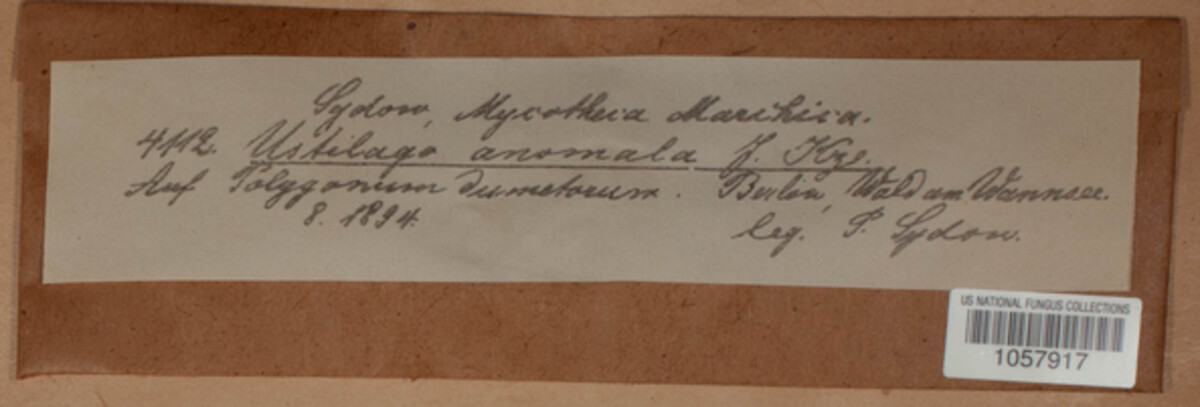 Sydow, Mycotheca Marchica.
4112. Ustilago anomala J. Kze.
Auf Polygonum dumetorum. Berlin, Wald am Wannsee.
8. 1894.
leg. P. Sydow.
US NATIONAL FUNGUS COLLECTIONS
1057917